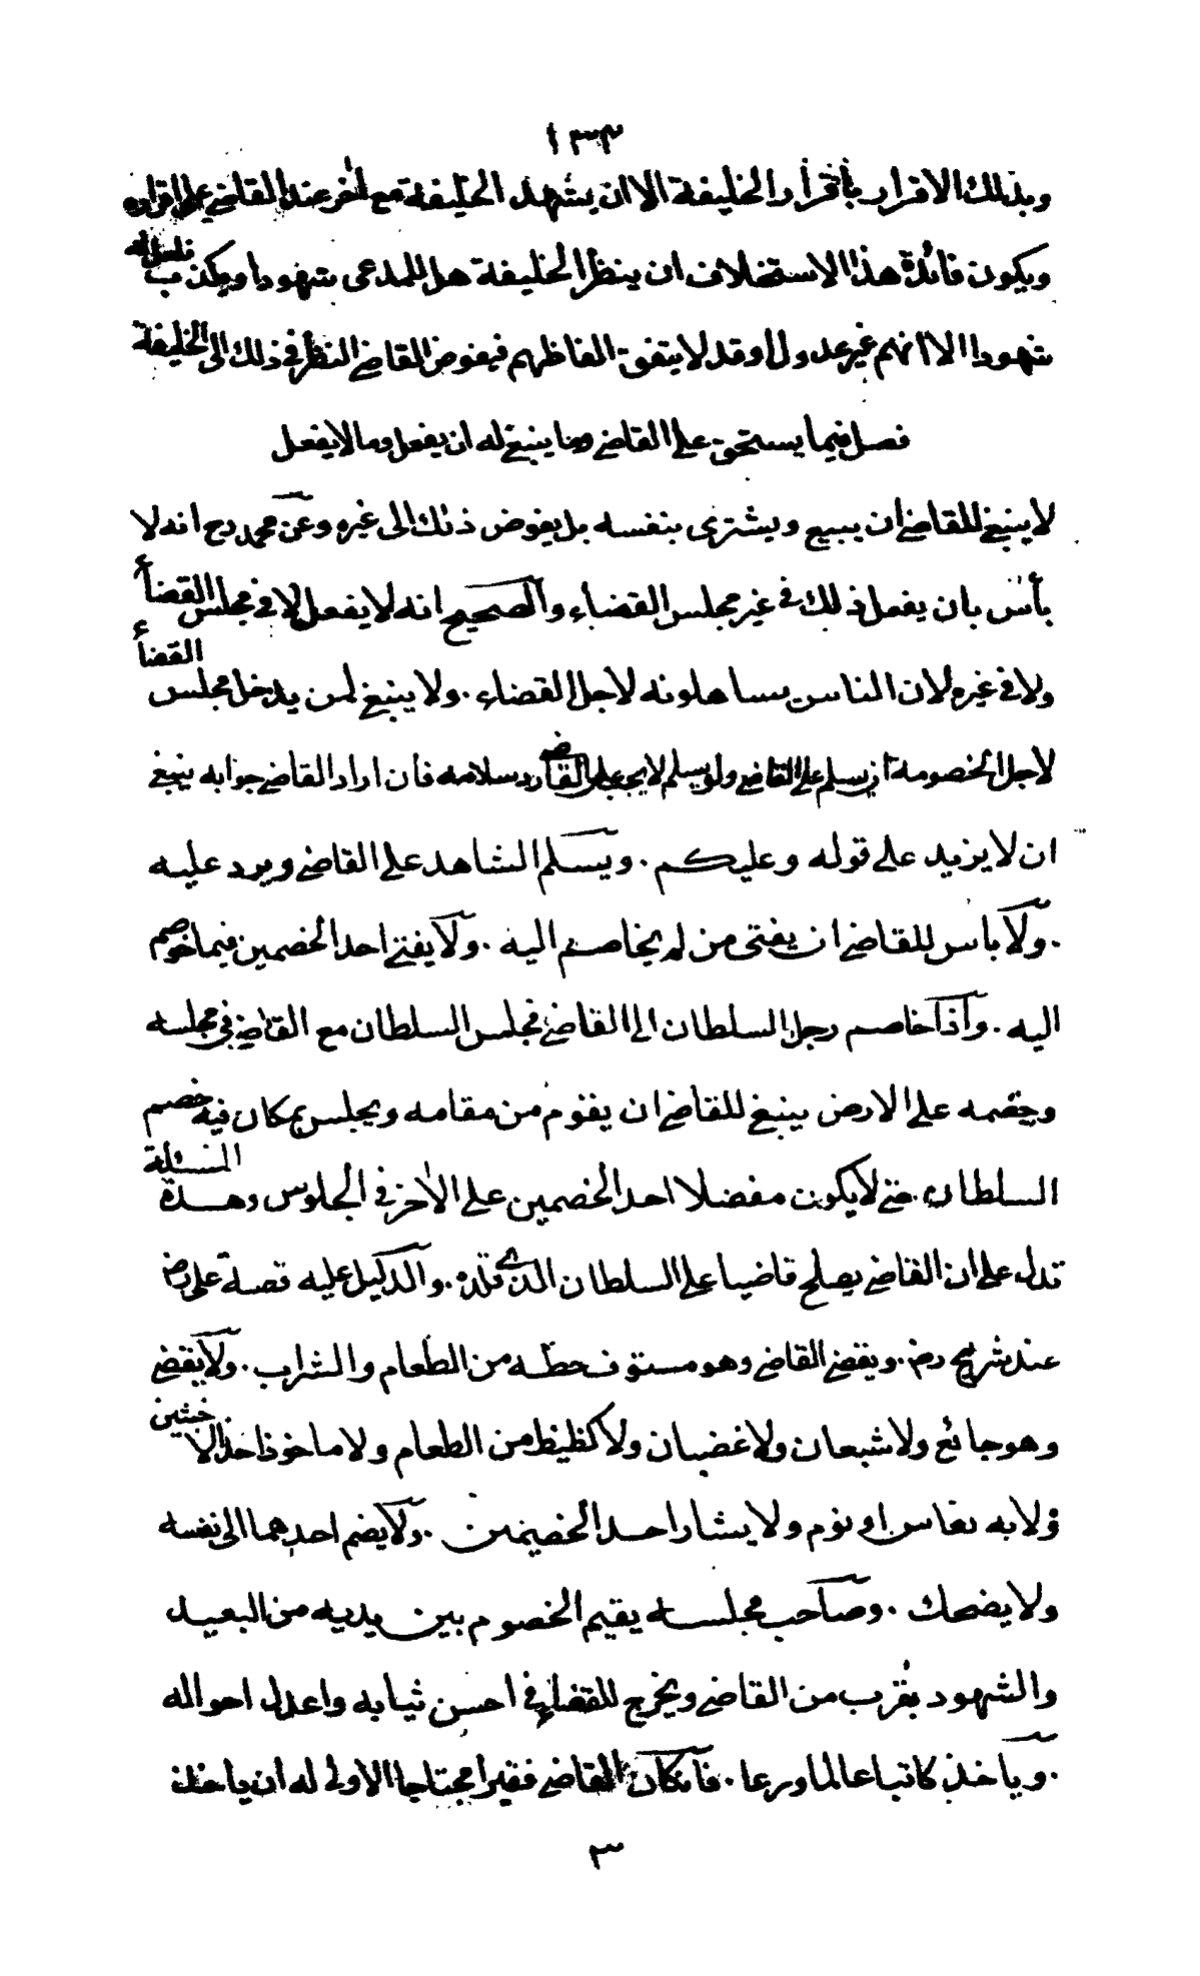 ١٣٣
وبذلك الاقرار بأقرار الخليفة الا ان يشهد الخليفة مع اخر عند القاضي على اقراره
ويكون فائدة هذا الاستخلاف ان ينظر الخليفة هل للمدعى شهود او يكذب فلعل له
شهودا الا انهم غير عدول او قد لا يتفق الفاظهم فيفوض القاضي النظر في ذلك الى الخليفة
فصل فيما يستحق على القاضي وما ينبغي له ان يفعل وما لا يفعل
لا ينبغي للقاضي ان يبيع ويشترى بنفسه بل يفوض ذلك الى غيره وعن محمد رح انه لا
بأس بان يفعل ذلك في غير مجلس القضاء والصحيح انه لا يفعل لا في مجلس القضأ
ولا في غيره لان الناس يساهلونه لاجل القضاء . ولا ينبغي لمن يدخل مجلس القضأ
لاجل الخصومة ان يسلم على القاضي ولو يسلم لا يجب على القاضي رد سلامه فأن اراد القاضي جوابه ينبغي
ان لا يزيد على قوله وعليكم . ويسلم الشاهد على القاضي ويرد عليه
. ولا بأس للقاضي ان يفتى من لم يخاصم اليه . ولا يفتي احد الخصمين فيما خوصم
اليه . واذا خاصم رجل السلطان الى القاضي فجلس السلطان مع القاضي في مجلسه
وخصمه على الارض ينبغي للقاضي ان يقوم من مقامه ويجلس بمكان فيه خصم
السلطان . حتى لا يكون مفضلا احد الخصمين على الأخر في الجلوس وهذة المسئلة
تدل على ان القاضي يصلح قاضيا على السلطان الذي قلده . والدليل عليه قصة على رض
عند شريح رض . ويقضي القاضي وهو مستوف حظه من الطعام والشراب . ولا يقضي
وهو جائع ولا شبعان ولا غضبان ولا كظيظ من الطعام ولا ماخوذ احد الاخبثين
ولا به نعاس او نوم ولا يشار احد الخصمين . ولا يضم احدهما الى نفسه
ولا يضحك . وصاحب مجلسه يقيم الخصوم بين يديه من البعيد
والشهود بقرب من القاضي ويخرج للقضاء في احسن ثيابه واعدل احواله
. ويأخذ كاتبا عالما ورعا . فأن كان القاضي فقيرا محتاجا الاولى له ان ياخذ
٣